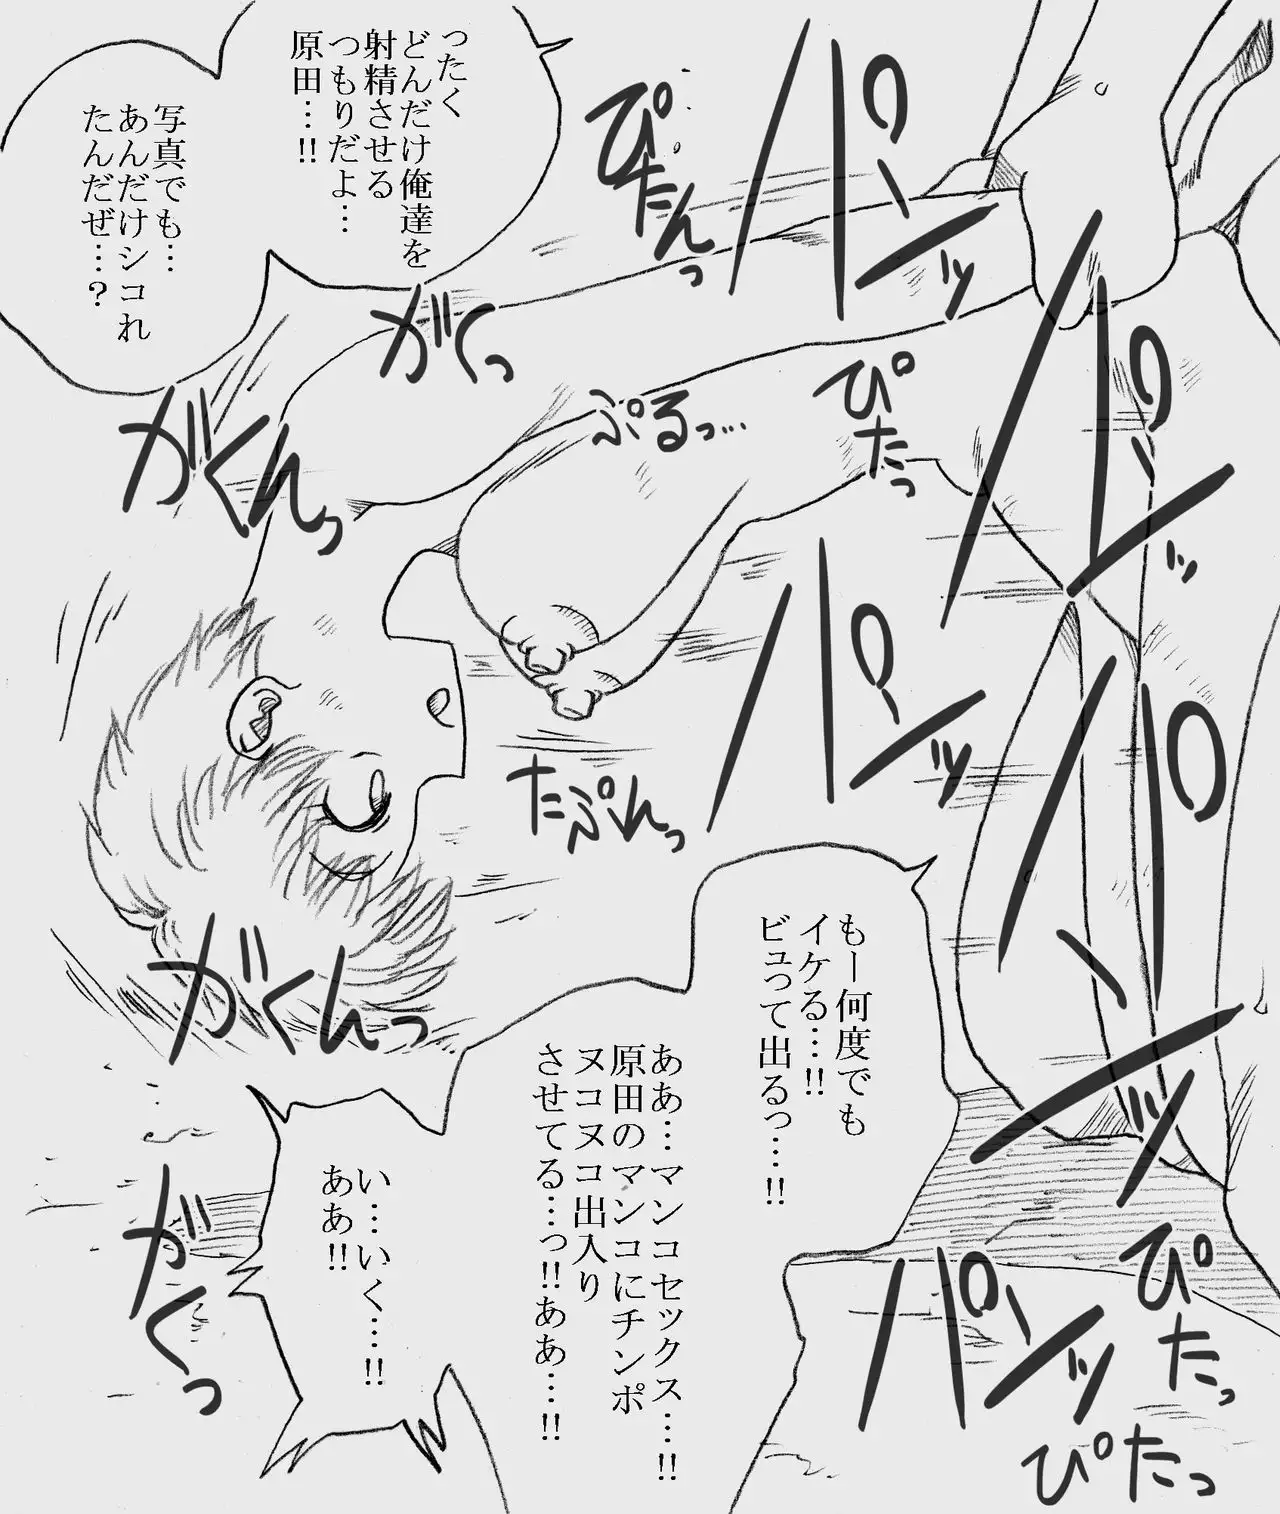 パンッ
ぴたんっ
ったく
どんだけ俺達を
射精させる
つもりだよ…
原田…!!
写真でも…
あんだけシコれ
たんだぜ…?
パンッ
ぴたっ
ぷるっ…
がくっ
がくんっ
パンッ
たぷんっ
パンッ
もー何度でも
イケる…!!
ビュって出るっ…!!
ああ…マンコセックス…!!
原田のマンコにチンポ
ヌコヌコ出入り
させてる…っ!!ああ…!!
がくんっ
い…いく…!!
ああ!!
がくっ
ぴたっ
パンッ
ぴたっ